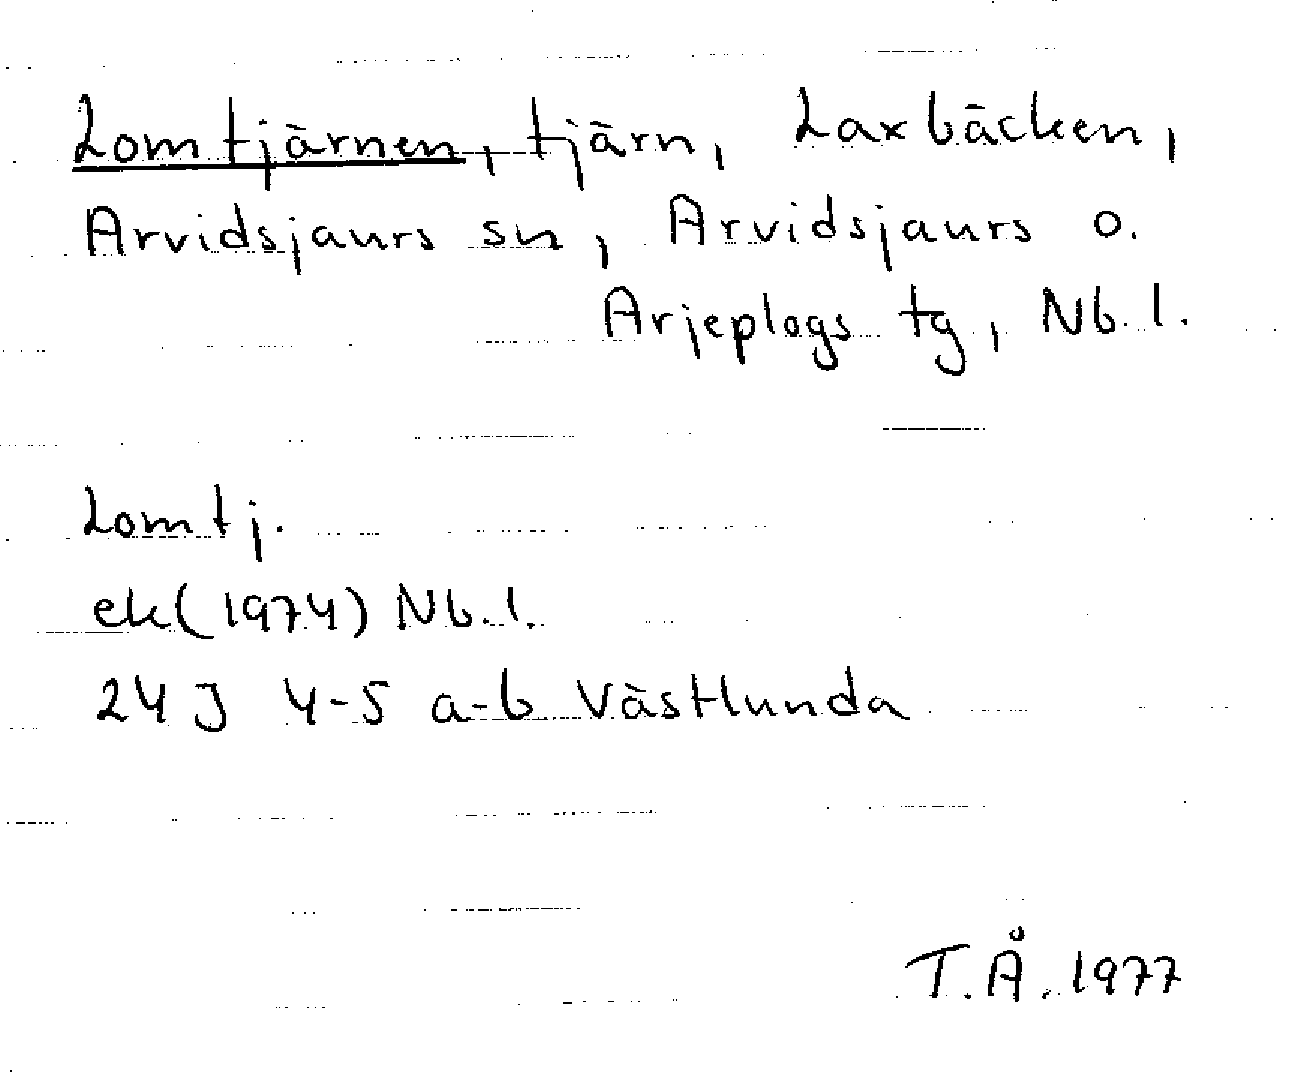 Lomtjärnen, tjärn, Laxbäcken,
Arvidsjaurs sn, Arvidsjaurs o.
Arjeplogs tg, Nb.l.
Lomtj.
ek(1974) Nb.l.
24J 4-5 a-b Västlunda
T.Å. 1977